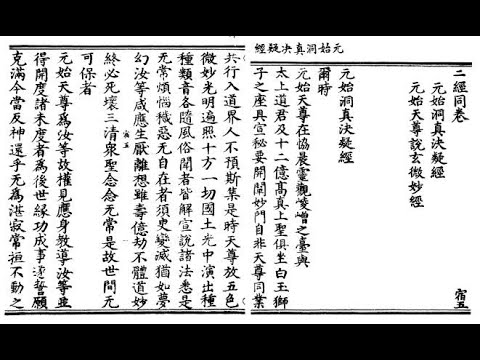 元始洞真决疑經
二經同卷
宿五
元始洞真決疑經
元始天尊說玄微妙經
元始洞真決疑經
爾時
元始天尊在協晨靈觀崚嶒之臺與
太上道君及十二億高真上聖俱坐白玉獅
子之座具宣秘要開闡妙門自非天尊同業
共行入道界人不預斯集是時天尊放五色
微妙光明遍照十方一切國土光中演出種
種類音各隨風俗聞者皆解宣說諸法悉是
无常煩惱穢惡无自在者須臾變滅猶如夢
幻汝等咸應生厭離想雖壽億劫不體道妙
終必死壞三清衆聖念念无常是故世間无
可保者
元始天尊為汝等故權見應身教導汝等並
得開度諸未度者為後世緣功成事遂誓願
克滿今當反神還乎无為湛寂常恒不動之